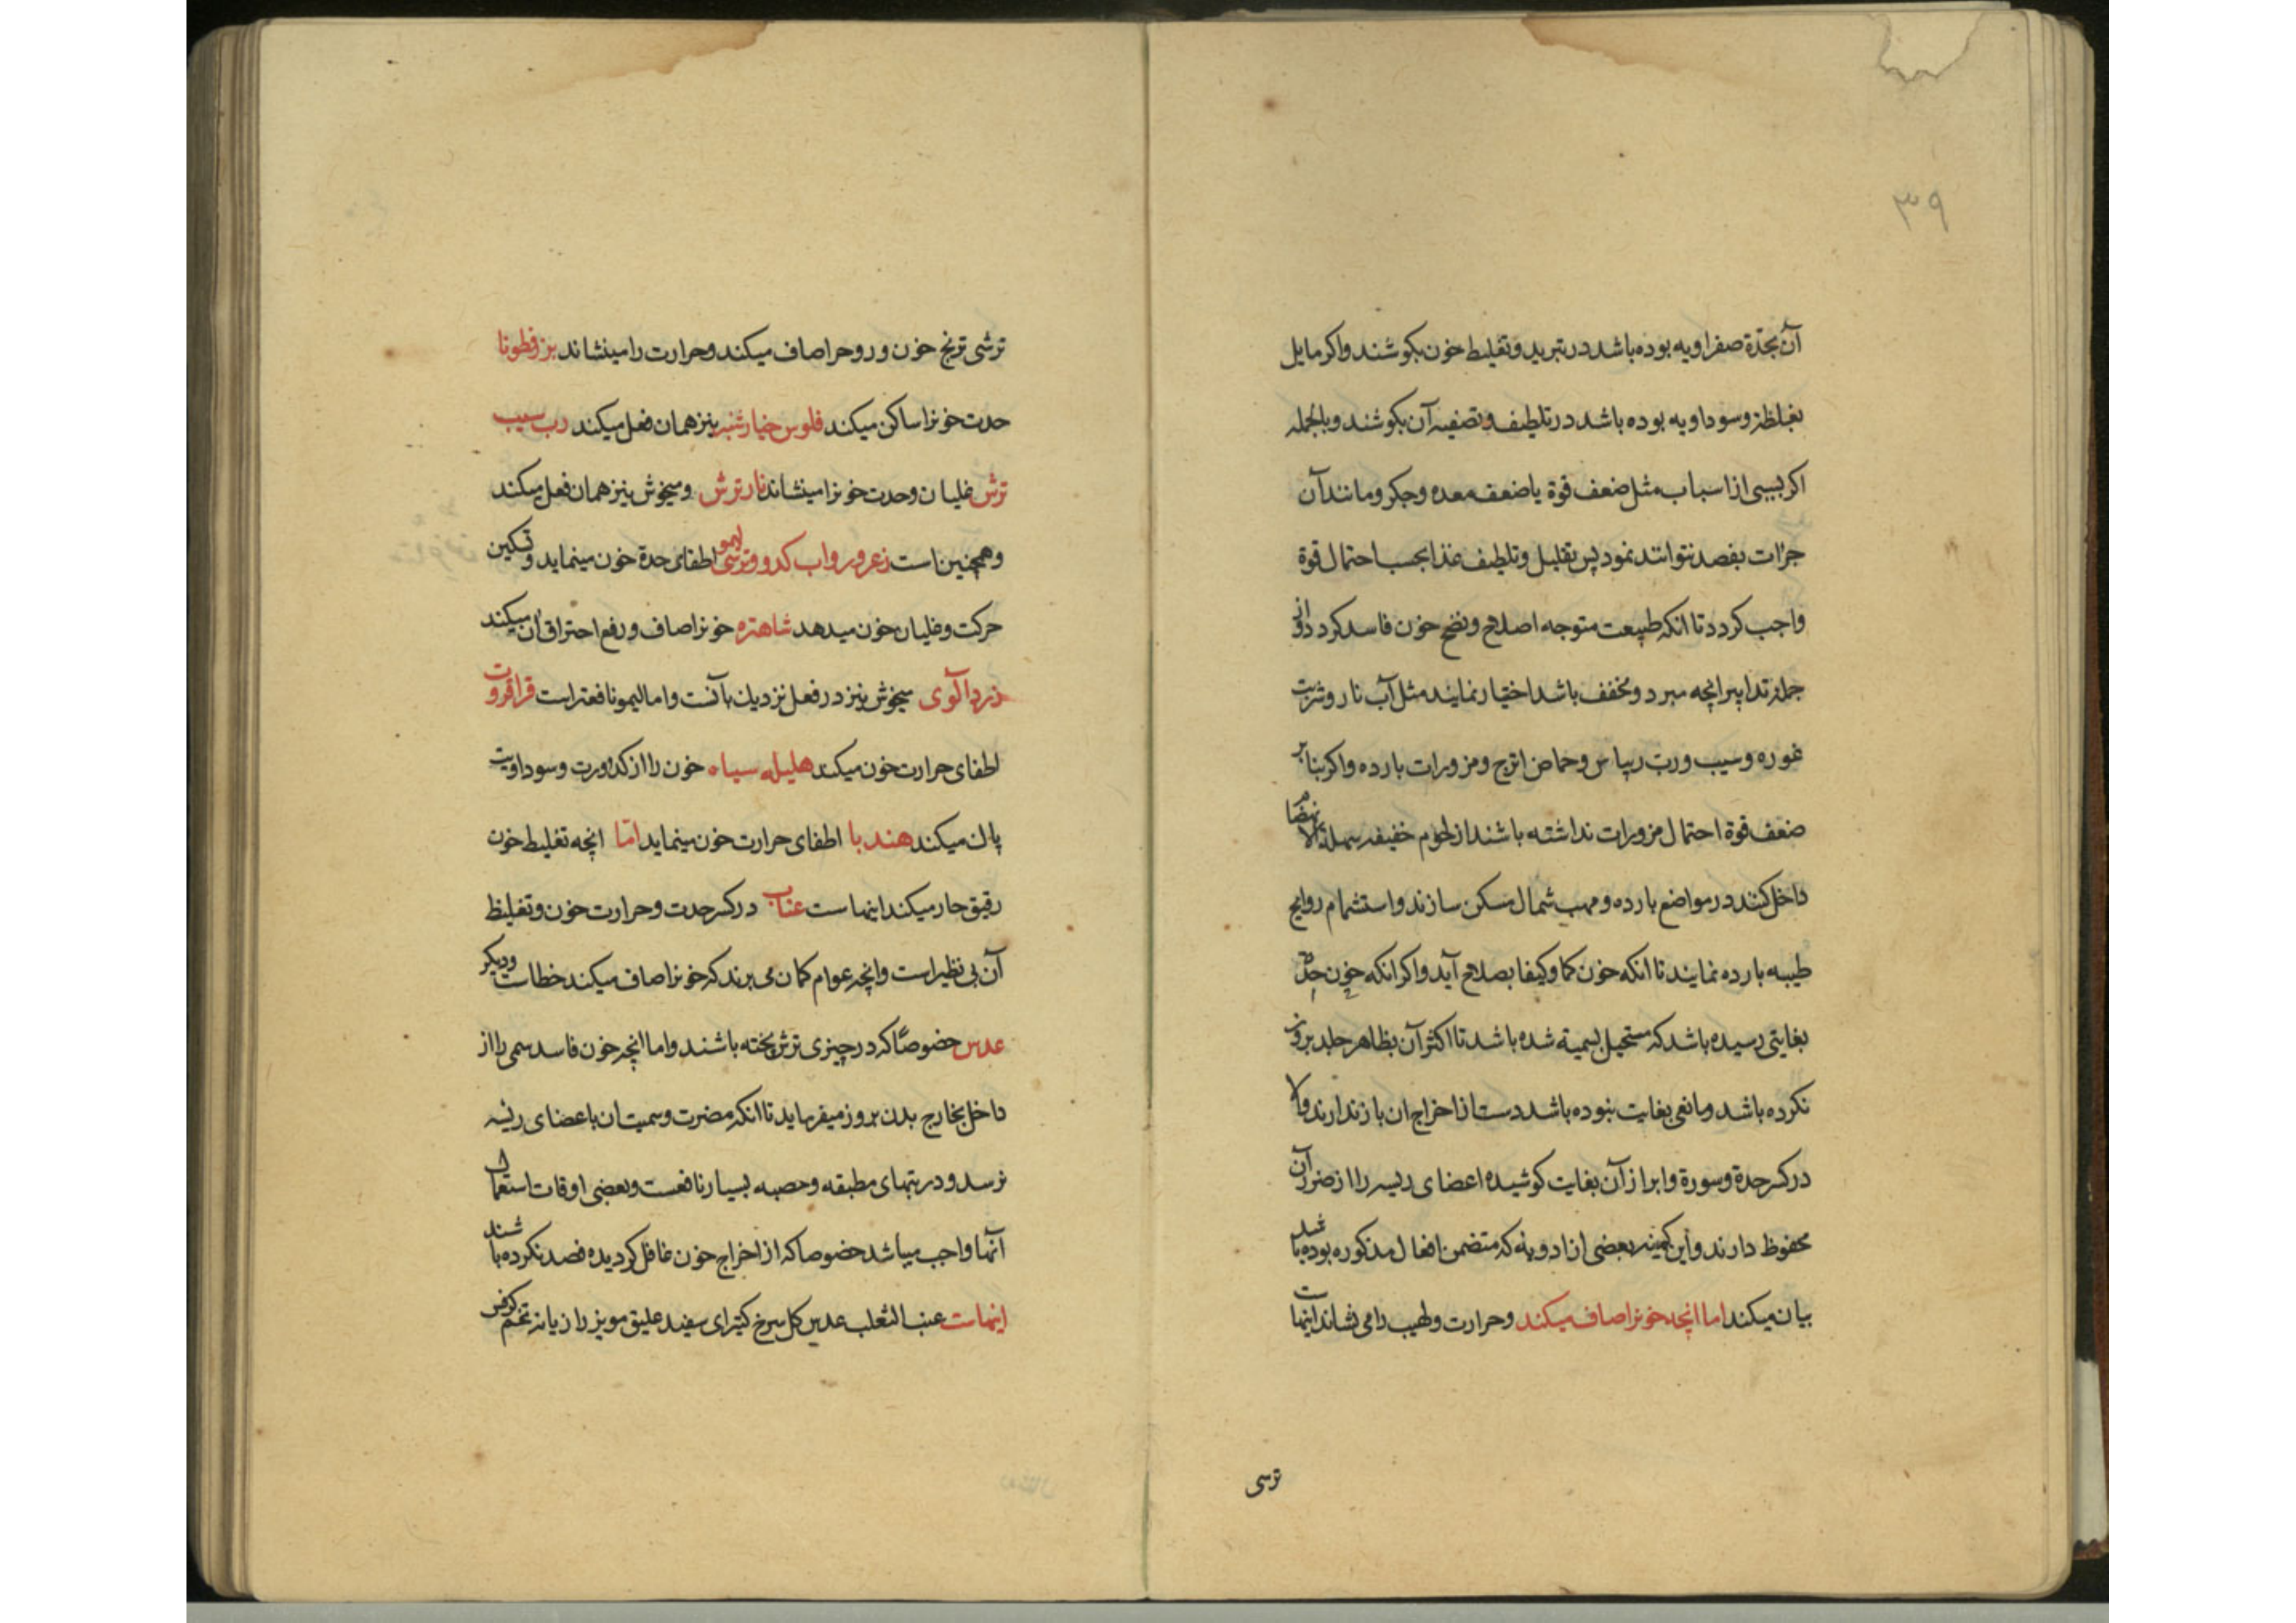 ۳۹
آن بحدّة صفراویه بوده باشد در تبرید و تغلیط خون بکوشند و اکر مایل
بغلظة و سوداویه بوده باشد در تلطیف و تصفیه آن بکوشند و بالجمله
اکر بسببی از اسباب مثل ضعف قوة یا ضعف معده و جکر و مانند آن
جرٔات بفصد نتوانند نمود پس تقلیل و تلطیف غذا بحسب احتمال قوة
واجب کردد تا انکه طبیعت متوجه اصلاح و نضج خون فاسد کردد و از
جمله تدابیر انچه مبرد و مخفف باشد اختیار نمایند مثل آب نار و شربت
غوره و سیب و رب ریباس و حماض اترج و مزورات بارده و اکر بنا بر
ضعف قوة احتمال مزورات نداشته باشند از لحوم خفیفه سهلة الانهضام
داخل کنند در مواضع بارده و مهب شمال مسکن سازند و استشمام روایح
طیبه بارده نمایند تا انکه خون کما و کیفا بصلاح آید و اکر انکه خون
بغایتی رسیده باشد که مستحیل بسمیة شده باشد تا اکثر آن بظاهر جلد بروز
نکرده باشد و مانعی بغایت نبوده باشد دست از اخراج ان باز ندارند والا
در کسر حدة و سورة و ابراز آن بغایت کوشیده اعضای رییسه را از ضرر آن
محفوظ دارند و این کمینه بعضی از ادویه که متضمن افعال مذکوره بوده باشد
بیان میکند اما انچه خونرا صاف میکند و حرارت و لهیب را می نشاند اینهاست
ترسی
ترشی ترنج خون و روح را صاف میکند و حرارت را مینشاند بزرقطونا
حدت خونرا ساکن میکند فلوس خیارشنبر نیز همان فعل میکند رب سیب
ترش غلیان و حدت خونرا مینشاند نار ترش و میخوش نیز همان فعل میکند
و همچنین است زعرور و اب کدو و ترشی لیمو اطفای حدة خون مینماید و تسکین
حرکت و غلیان خون میدهد شاهتره خونرا صاف و رفع احتراق ان میکند
زردآلوی میخوش نیز در فعل نزدیك بآنست و اما لیمو نافعتر است قراقروت
اطفای حرارت خون میکند هلیله سیاه خون را از کدورت و سوداویت
پاك میکند هندبا اطفای حرارت خون مینماید امّا انچه تغلیط خون
رقیق حار میکند اینهاست عناب در کسر حدت و حرارت خون و تغلیظ
آن بی نظیر است و انچه عوام کمان می برند که خونرا صاف میکند خطاست و دیکر
عدس خصوصًا که در چیزی ترش پخته باشند و اما انچه خون فاسد سمی را از
داخل بخارج بدن بروز میفرماید تا انکه مضرت و سمیت ان باعضای رئیسه
نرسد و در تبهای مطبقه و حصبه بسیار نافعست و بعضی اوقات استعمال
آنها واجب میباشد خصوصا که از اخراج خون غافل کردیده فصد نکرده باشند
اینهاست عنب الثعلب عدس کل سرخ کتیرای سفید علیق مویز رازیانه تخم کرفس